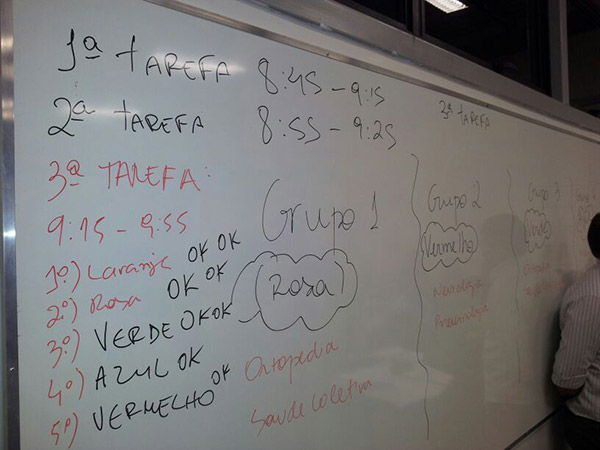 1ª TAREFA 8:45 - 9:15
2ª TAREFA 8:55 - 9:25
3ª TAREFA:
9:15 - 9:55
1º) Laranja OK OK
2º) Rosa OK OK
3º) VERDE OKOK
4º) AZUL OK
5º) VERMELHO OK
Grupo 1
Rosa
Ortopedia
Saude coletiva
3ª TAREFA
Grupo 2
Vermelho
Neurologia
Pneumologia
Grupo 3
Verde